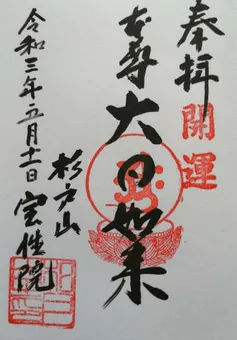 奉拝
開運
本尊
大日如来
杉戸山
宝性院
令和三年五月十一日